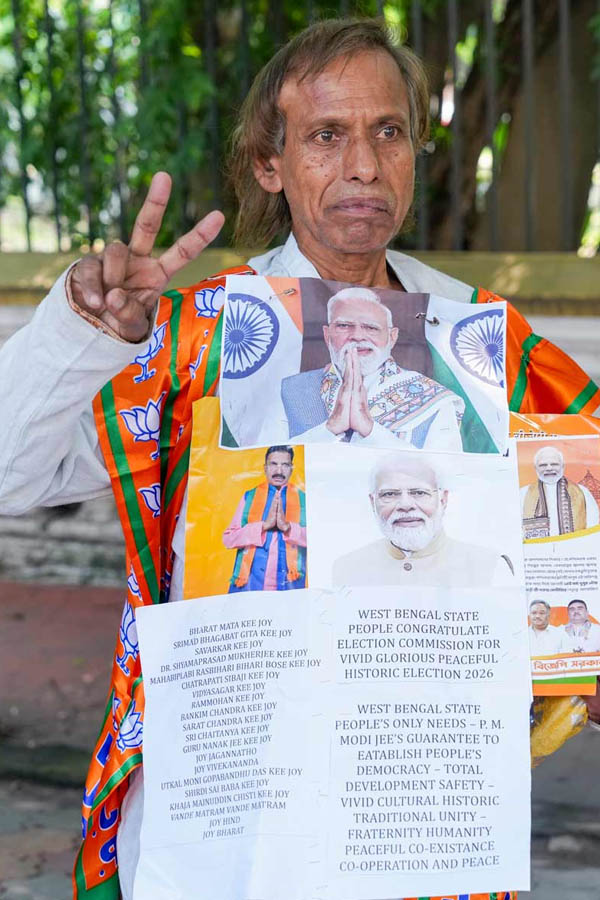 BHARAT MATA KEE JOY
SRIMAD BHAGABAT GITA KEE JOY
SAVARKAR KEE JOY
DR. SHYAMAPRASAD MUKHERJEE KEE JOY
MAHABIPLABI RASBIHARI BIHARI BOSE KEE JOY
CHATRAPATI SIBAJI KEE JOY
VIDYASAGAR KEE JOY
RAMMOHAN KEE JOY
BANKIM CHANDRA KEE JOY
SARAT CHANDRA KEE JOY
SRI CHAITANYA KEE JOY
GURU NANAK JEE KEE JOY
JOY JAGANNATHO
JOY VIVEKANANDA
UTKAL MONI GOPABANDHU DAS KEE JOY
SHIRDI SAI BABA KEE JOY
KHAJA MAINUDDIN CHISTI KEE JOY
VANDE MATRAM VANDE MATRAM
JOY HIND
JOY BHARAT
WEST BENGAL STATE
PEOPLE CONGRATULATE
ELECTION COMMISSION FOR
VIVID GLORIOUS PEACEFUL
HISTORIC ELECTION 2026
WEST BENGAL STATE
PEOPLE'S ONLY NEEDS – P. M.
MODI JEE'S GUARANTEE TO
EATABLISH PEOPLE'S
DEMOCRACY – TOTAL
DEVELOPMENT SAFETY –
VIVID CULTURAL HISTORIC
TRADITIONAL UNITY –
FRATERNITY HUMANITY
PEACEFUL CO-EXISTANCE
CO-OPERATION AND PEACE
বিজেপি সরকার